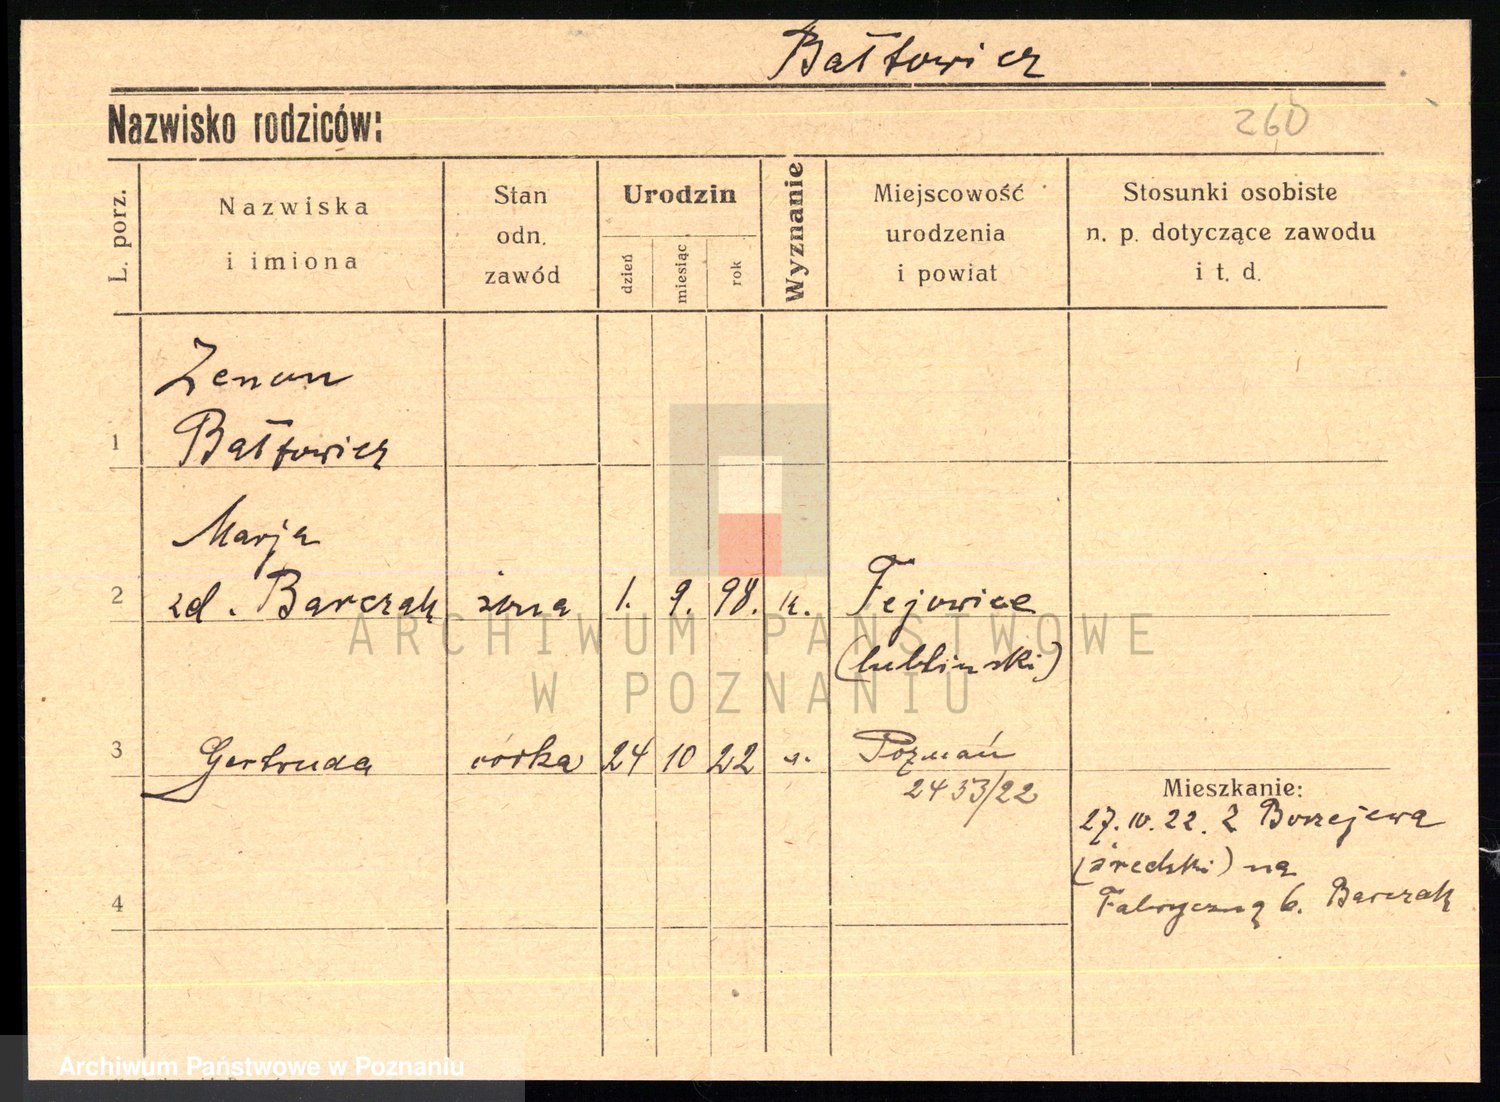 Bałtowicz
Nazwisko rodziców:
260
L. porz.
Nazwiska
i imiona
Stan
odn.
zawód
Urodzin
dzień
miesiąc
rok
Wyznanie
Miejscowość
urodzenia
i powiat
Stosunki osobiste
n. p. dotyczące zawodu
i t. d.
Zenon
1 Bałtowicz
Marja
2 zd. Barczak żona 1. 9. 98. k. Fejowice
(lubliński)
3 Gertruda córka 24 10 22 Poznań
2433/22
Mieszkanie:
27. 10. 22. Z Borzejewa
(średzki) na
4 Fabryczną 6. Barczak
ARCHIWUM PAŃSTWOWE
W POZNANIU
Archiwum Państwowe w Poznaniu